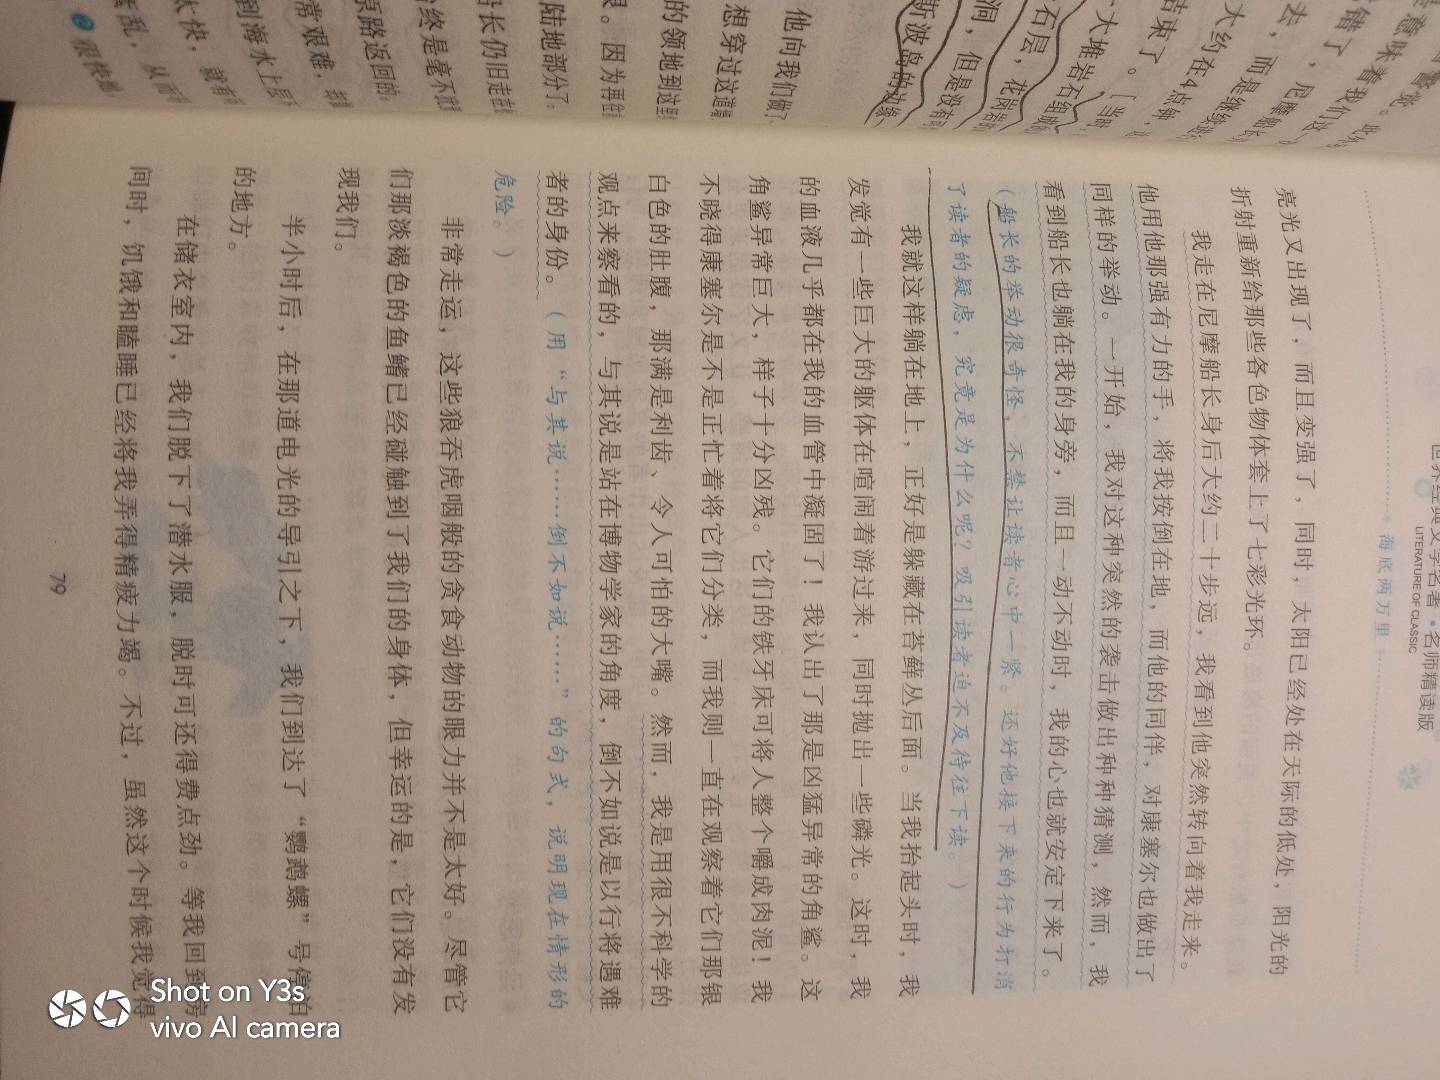 世界经典文学名著·名师精读版
LITERATURE OF CLASSIC
海底两万里
亮光又出现了，而且变强了，同时，太阳已经处在天际的低处，阳光的
折射重新给那些各色物体套上了七彩光环。
我走在尼摩船长身后大约二十步远，我看到他突然转向着我走来。
他用他那强有力的手，将我按倒在地，而他的同伴，对康塞尔也做出了
同样的举动。一开始，我对这种突然的袭击做出种种猜测，然而，我
看到船长也躺在我的身旁，而且一动不动时，我的心也就安定下来了。
（船长的举动很奇怪，不禁让读者心中一紧。还好他接下来的行为打消
了读者的疑虑，究竟是为什么呢？吸引读者迫不及待往下读。）
我就这样躺在地上，正好是躲藏在苔藓丛后面。当我抬起头时，我
发觉有一些巨大的躯体在喧闹着游过来，同时抛出一些磷光。这时，我
的血液几乎都在我的血管中凝固了！我认出了那是凶猛异常的角鲨。这
角鲨异常巨大，样子十分凶残。它们的铁牙床可将人整个嚼成肉泥！我
不晓得康塞尔是不是正忙着将它们分类，而我则一直在观察着它们那银
白色的肚腹，那满是利齿、令人可怕的大嘴。然而，我是用很不科学的
观点来察看的，与其说是站在博物学家的角度，倒不如说是以行将遇难
者的身份。（用“与其说……倒不如说……”的句式，说明现在情形的
危险。）
非常走运，这些狼吞虎咽般的贪食动物的眼力并不是太好。尽管它
们那淡褐色的鱼鳍已经碰触到了我们的身体，但幸运的是，它们没有发
现我们。
半小时后，在那道电光的导引之下，我们到达了“鹦鹉螺”号停泊
的地方。
在储衣室内，我们脱下了潜水服，脱时可还得费点劲。等我回到房
间时，饥饿和瞌睡已经将我弄得精疲力竭。不过，虽然这个时候我觉得
79
意味着我们这一
错了，尼摩船长
去，而是继续
大约在4点钟，
结束了。［当时，
大堆岩石组成
石层，花岗岩
洞，但是没有
斯波岛的边缘
他向我们做了
想穿过这道
的领地到这里
限。因为再往
陆地部分了。
船长仍旧走在
始终是毫不
原路返回的。
常艰难，
到海水上层
太快，就有
紊乱，从而
❷很快地
Shot on Y3s
vivo AI camera